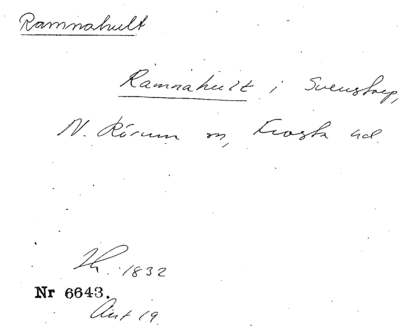 Ramnahult
Ramnahult i Svenstorp,
N. Rörum sn, Frosta hd.
Th. 1832
Nr 6643.
Ant 19